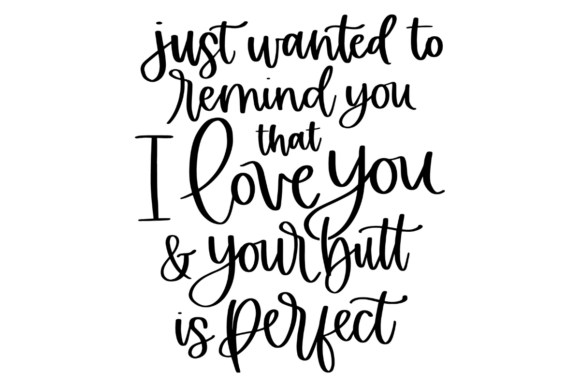 just wanted to
remind you
that
I love you
& your butt
is perfect